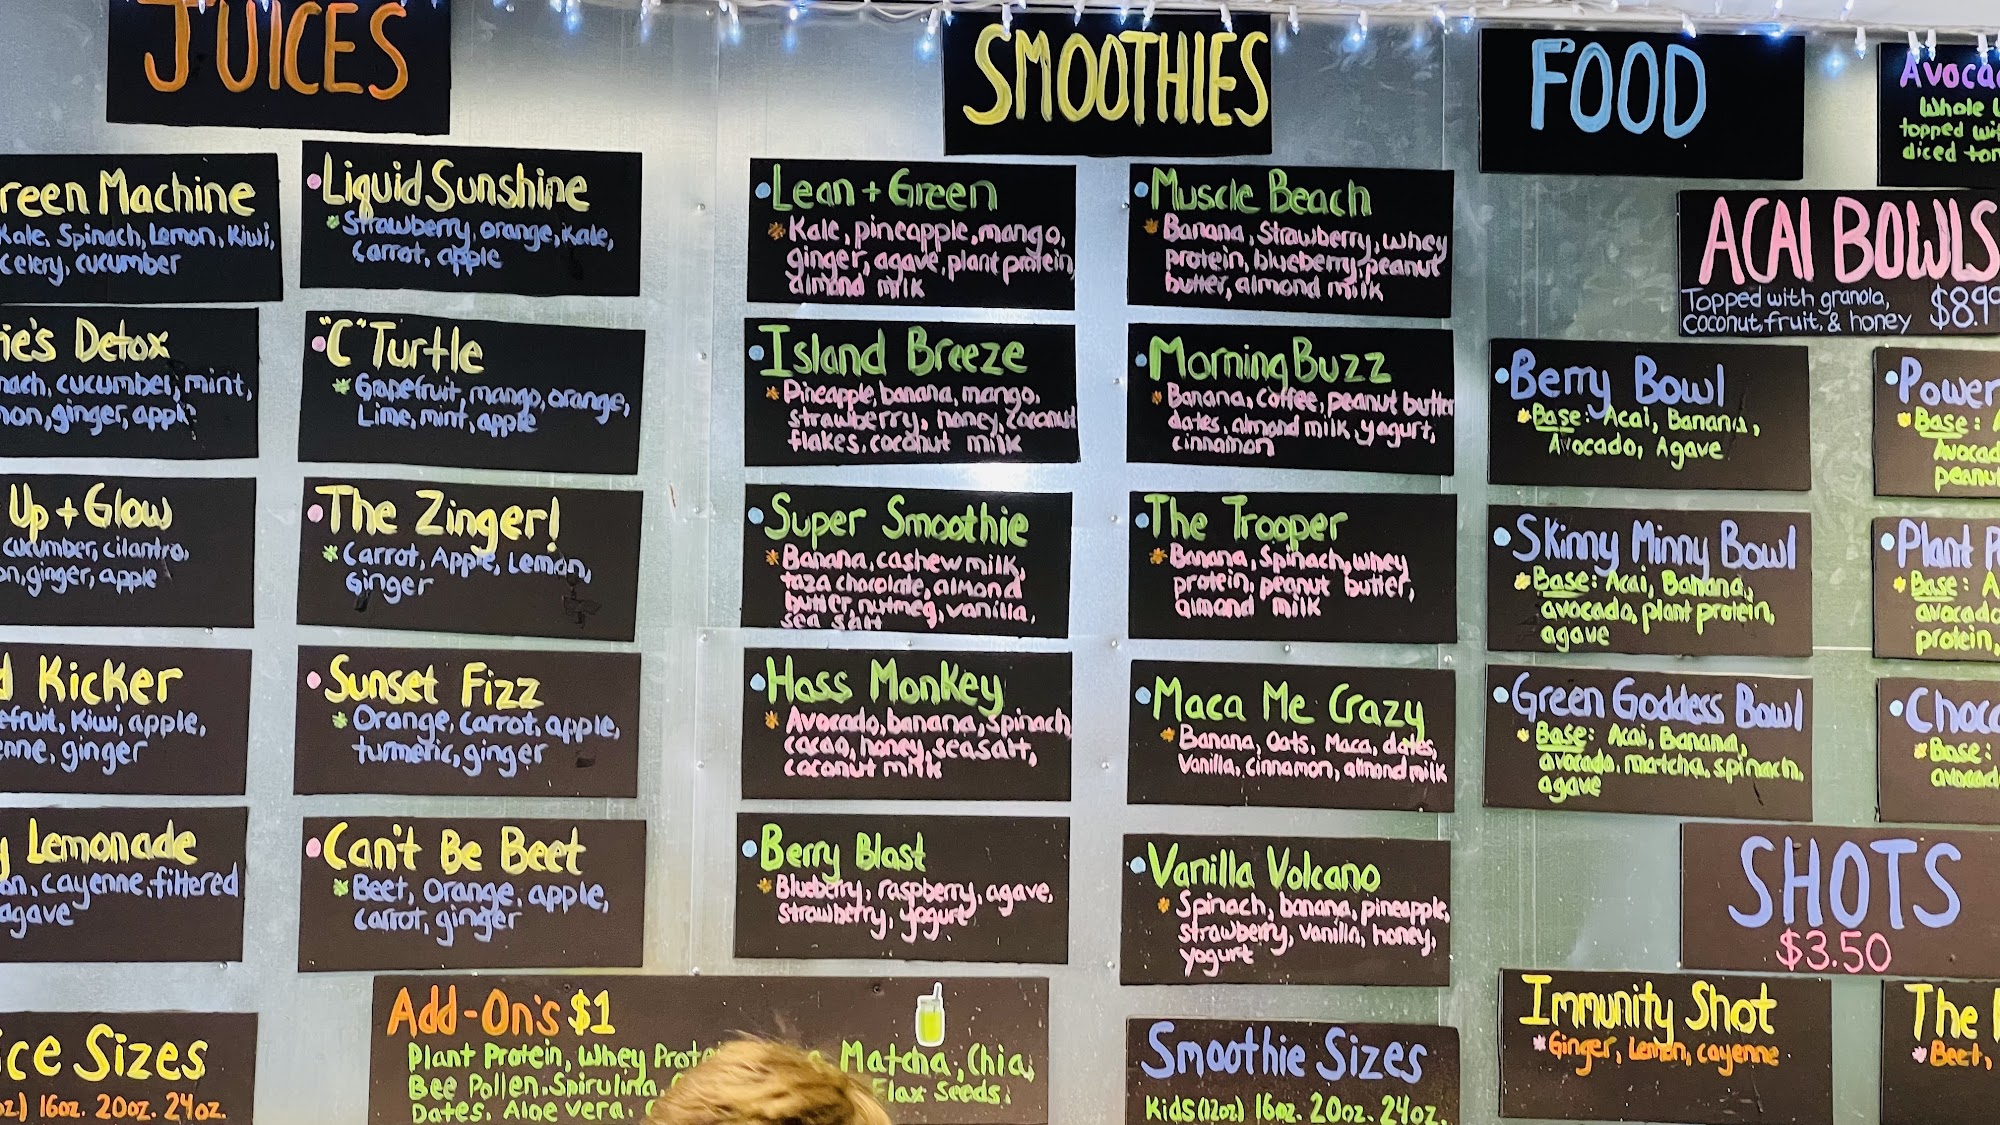 JUICES
Green Machine
Kale, Spinach, Lemon, Kiwi,
celery, cucumber
Detox
cucumber, mint,
ginger, apple
Up + Glow
cucumber, cilantro,
ginger, apple
Kicker
Kiwi, apple,
ginger
Lemonade
cayenne, filtered
agave
Sizes
16oz. 20oz. 24oz.
Liquid Sunshine
Strawberry, orange, Kale,
carrot, apple
"C" Turtle
Grapefruit, mango, orange,
Lime, mint, apple
The Zinger!
Carrot, Apple, Lemon,
Ginger
Sunset Fizz
Orange, carrot, apple,
turmeric, ginger
Can't Be Beet
Beet, Orange, apple,
carrot, ginger
Add-On's $1
Plant Protein, Whey Matcha, Chia,
Bee Pollen, Spirulina, Flax Seeds,
Dates, Aloe vera.
SMOOTHIES
Lean + Green
Kale, pineapple, mango,
ginger, agave, plant protein,
almond milk
Island Breeze
Pineapple, banana, mango,
strawberry, honey, coconut
flakes, coconut milk
Super Smoothie
Banana, cashew milk,
taza chocolate, almond
butter, nutmeg, vanilla,
sea salt
Hass Monkey
Avocado, banana, spinach,
cacao, honey, sea salt,
coconut milk
Berry Blast
Blueberry, raspberry, agave,
strawberry, yogurt
Muscle Beach
Banana, Strawberry, whey
protein, blueberry, peanut
butter, almond milk
Morning Buzz
Banana, coffee, peanut butter
dates, almond milk, yogurt,
cinnamon
The Trooper
Banana, Spinach, whey
protein, peanut butter,
almond milk
Maca Me Crazy
Banana, Oats, Maca, dates,
Vanilla, Cinnamon, almond milk
Vanilla Volcano
Spinach, banana, pineapple,
strawberry, vanilla, honey,
yogurt
Smoothie Sizes
Kids (12oz) 16oz. 20oz. 24oz.
FOOD
Whole
topped
diced
ACAI BOWLS
Topped with granola,
Coconut, fruit, & honey $8.99
Berry Bowl
Base: Acai, Banana,
Avocado, Agave
Skinny Minny Bowl
Base: Acai, Banana,
avocado, plant protein,
agave
Green Goddess Bowl
Base: Acai, Banana,
avocado, matcha, spinach,
agave
Power
Base:
Plant
Base:
avocado
protein,
Base:
SHOTS
$3.50
Immunity Shot
Ginger, Lemon, cayenne
The
Beet,